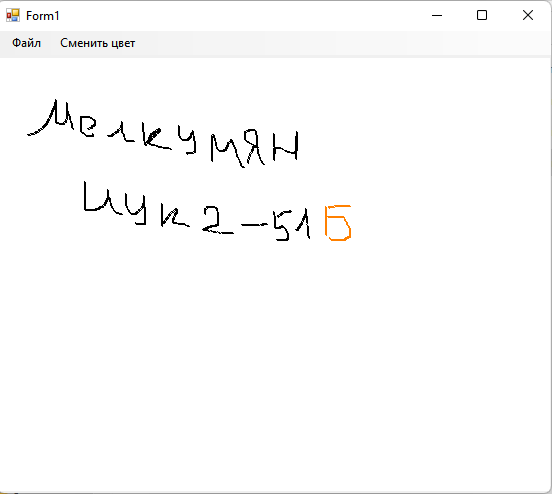 Form1
Файл Сменить цвет
Мелкумян
ИУК2-51Б